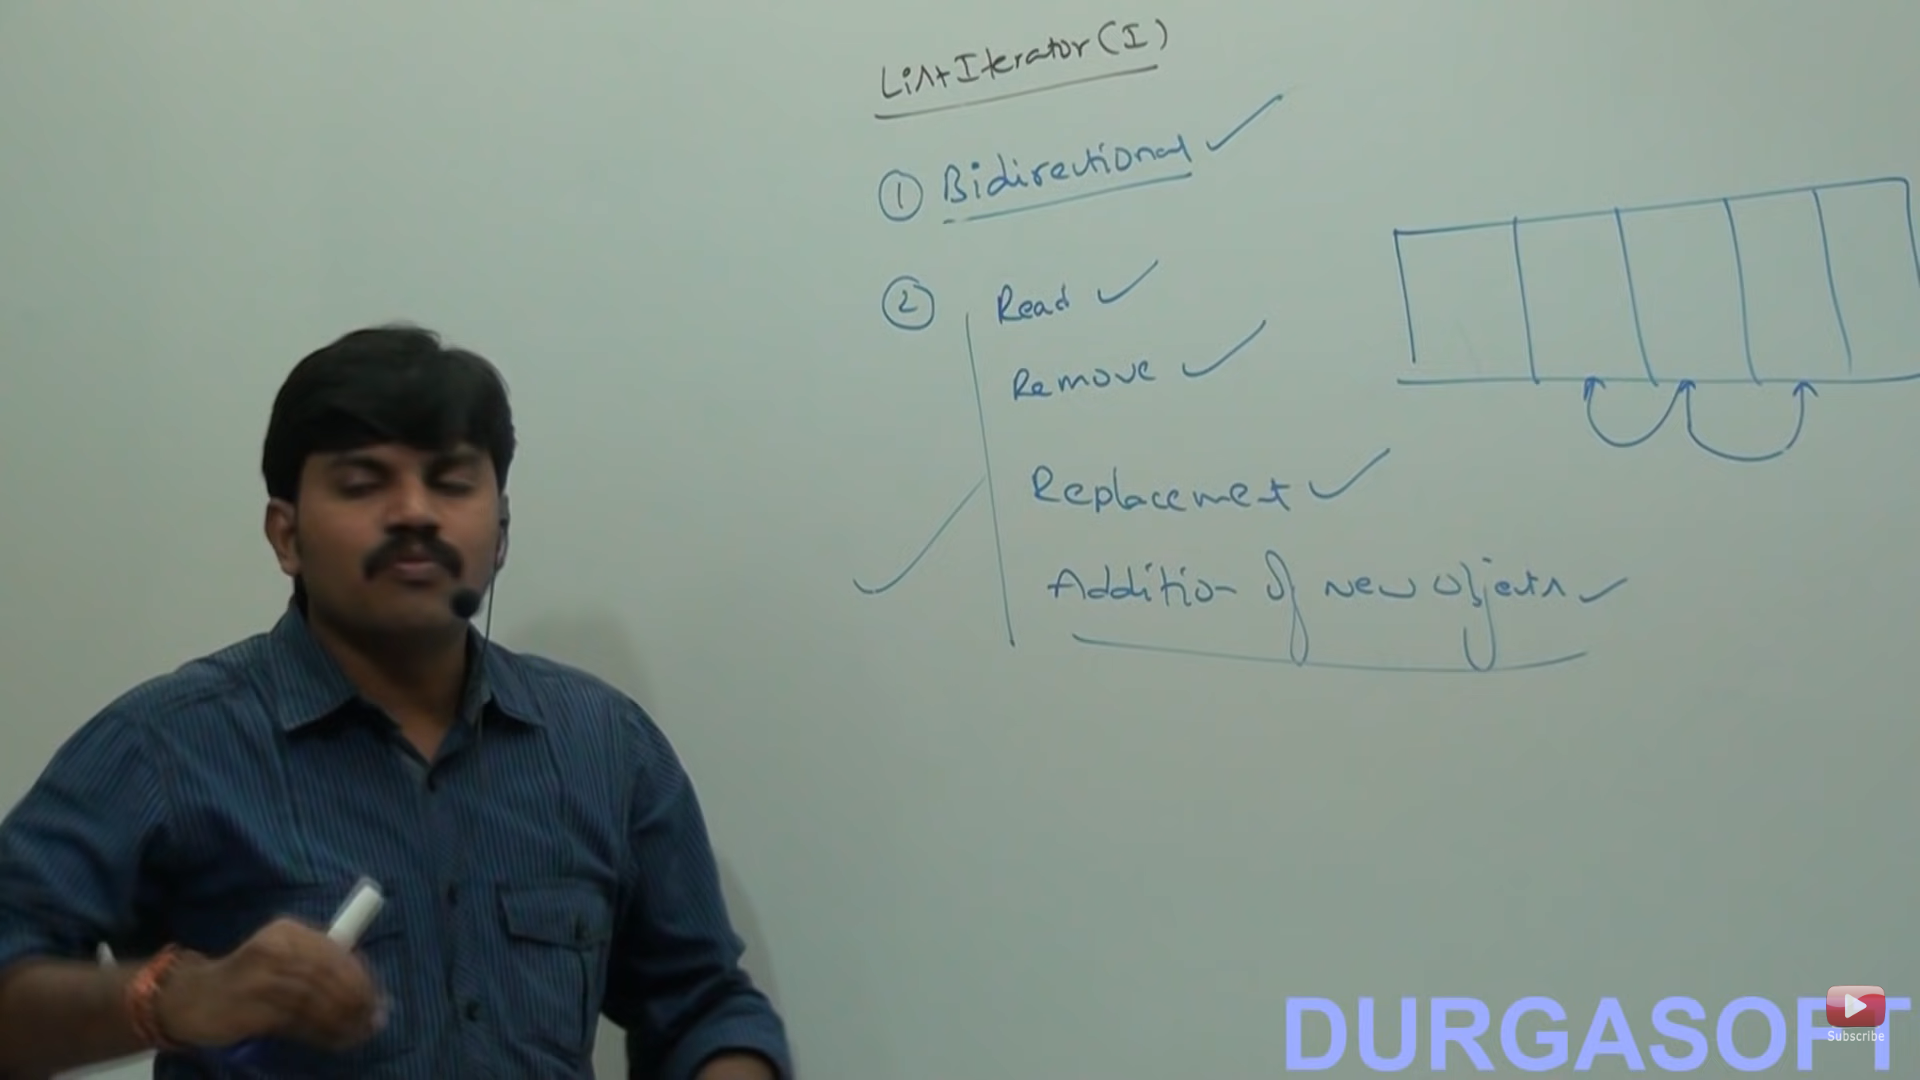 ListIterator(I)
① Bidirectional
② Read
Remove
Replacement
Addition of new objects
DURGASOFT
Subscribe